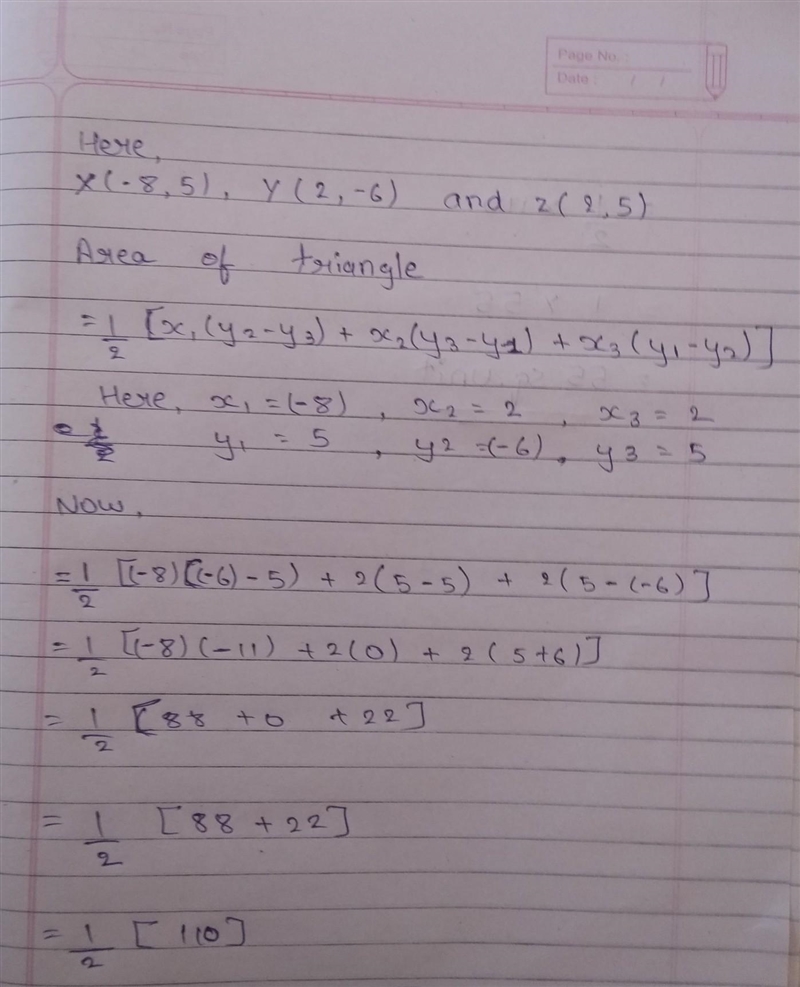 Page No. :
Date : / /
Here,
X(-8,5), Y(2,-6) and Z(2,5)
Area of triangle
= 1/2 [x₁(y₂-y₃) + x₂(y₃-y₁) + x₃(y₁-y₂)]
Here, x₁ = (-8), x₂ = 2, x₃ = 2
y₁ = 5, y2 = (-6), y3 = 5
Now,
= 1/2 [(-8)[(-6)-5) + 2(5-5) + 2(5-(-6)]
= 1/2 [(-8)(-11) + 2(0) + 2(5+6)]
= 1/2 [88 + 0 + 22]
= 1/2 [88 + 22]
= 1/2 [110]